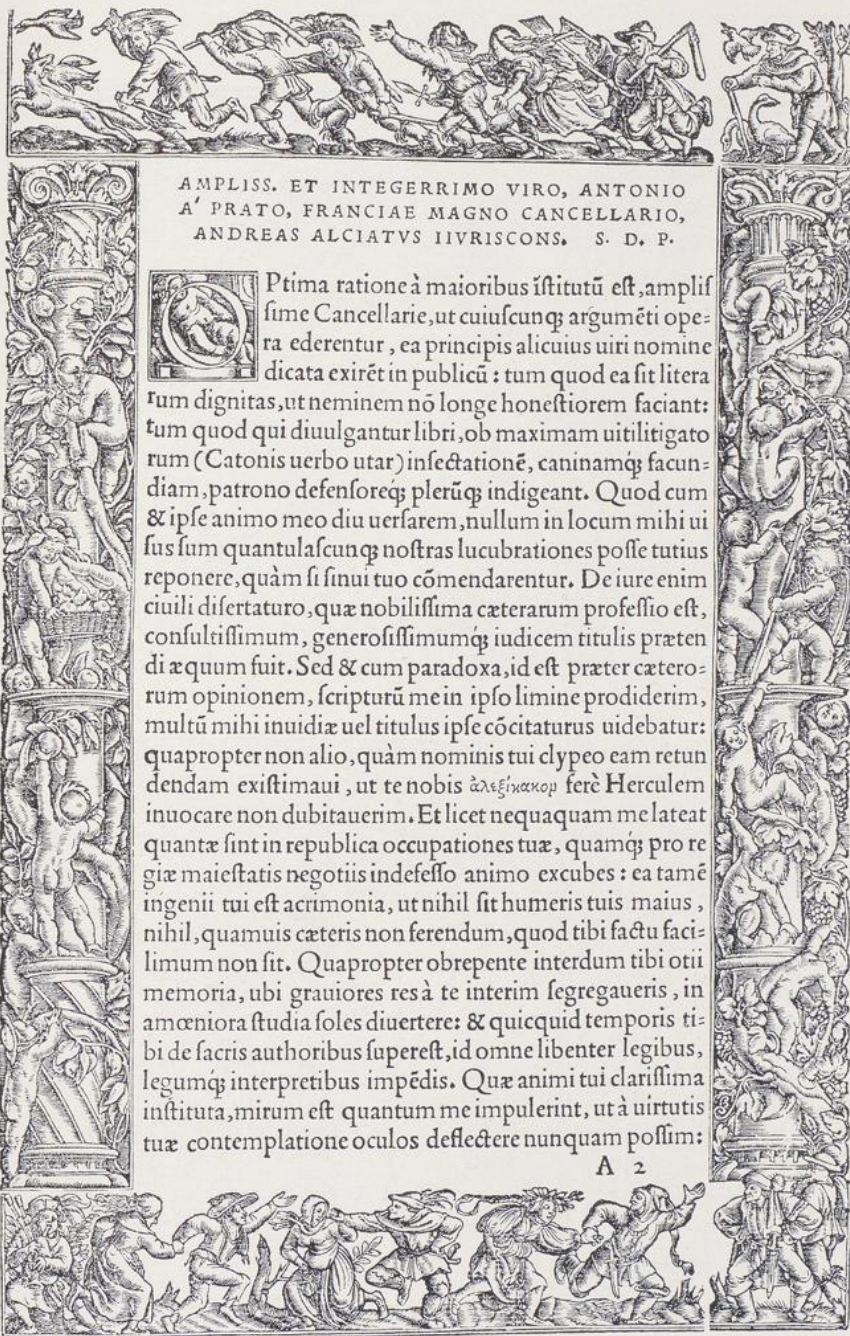 AMPLISS. ET INTEGERRIMO VIRO, ANTONIO
A' PRATO, FRANCIAE MAGNO CANCELLARIO,
ANDREAS ALCIATVS IIVRISCONS. S. D. P.
OPtima ratione à maioribus īſtitutū eſt, ampliſ
ſime Cancellarie, ut cuiuſcunqꝫ argumēti ope⸗
ra ederentur, ea principis alicuius uiri nomine
dicata exirēt in publicū: tum quod ea ſit litera
rum dignitas, ut neminem nō longe honeſtiorem faciant:
tum quod qui diuulgantur libri, ob maximam uitilitigato
rum (Catonis uerbo utar) inſectationē, caninamq́ꝫ facun⸗
diam, patrono defenſoreq́ꝫ plerūqꝫ indigeant. Quod cum
& ipſe animo meo diu uerſarem, nullum in locum mihi ui
ſus ſum quantulaſcunqꝫ noſtras lucubrationes poſſe tutius
reponere, quàm ſi ſinui tuo cōmendarentur. De iure enim
ciuili diſertaturo, quæ nobiliſſima cæterarum profeſſio eſt,
conſultiſſimum, generoſiſſimumq́ꝫ iudicem titulis præten
di æquum fuit. Sed & cum paradoxa, id eſt præter cætero⸗
rum opinionem, ſcripturū me in ipſo limine prodiderim,
multū mihi inuidiæ uel titulus ipſe cōcitaturus uidebatur:
quapropter non alio, quàm nominis tui clypeo eam retun
dendam exiſtimaui, ut te nobis ἀλεξίκακον ferè Herculem
inuocare non dubitauerim. Et licet nequaquam me lateat
quantæ ſint in republica occupationes tuæ, quamq́ꝫ pro re
giæ maieſtatis negotiis indefeſſo animo excubes: ea tamē
ingenii tui eſt acrimonia, ut nihil ſit humeris tuis maius,
nihil, quamuis cæteris non ferendum, quod tibi factu faci⸗
limum non ſit. Quapropter obrepente interdum tibi otii
memoria, ubi grauiores res à te interim ſegregaueris, in
amœniora ſtudia ſoles diuertere: & quicquid temporis ti⸗
bi de ſacris authoribus ſupereſt, id omne libenter legibus,
legumq́ꝫ interpretibus impēdis. Quæ animi tui clariſſima
inſtituta, mirum eſt quantum me impulerint, ut à uirtutis
tuæ contemplatione oculos deflectere nunquam poſſim:
A 2